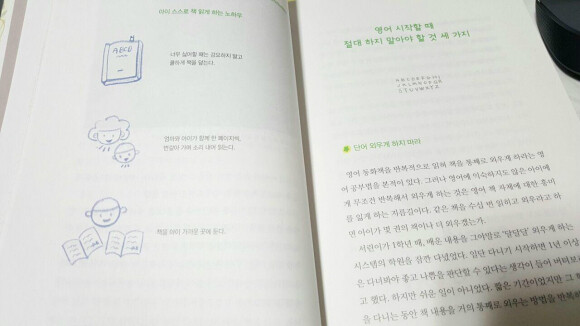 아이 스스로 책 읽게 하는 노하우
ABCD
너무 싫어할 때는 강요하지 말고
쿨하게 책을 덮는다.
엄마와 아이가 함께 한 페이지씩,
번갈아 가며 소리 내어 읽는다.
책을 아이 가까운 곳에 둔다.
영어 시작할 때
절대 하지 말아야 할 것 세 가지
ABCDEFGHI
JKLMNOPQR
STUVWXYZ
단어 외우게 하지 마라
영어 동화책을 반복적으로 읽혀 책을 통째로 외우게 하라는 영
어 공부법을 본적이 있다. 그러나 영어에 익숙하지도 않은 아이에
게 무조건 반복해서 외우게 하는 것은 영어 책 자체에 대한 흥미
를 잃게 하는 지름길이다. 같은 책을 수십 번 읽히고 외우라고 하
면 아이가 몇 권의 책이나 더 외우겠는가.
서린이가 1학년 때, 배운 내용을 그야말로 '달달달' 외우게 하는
시스템의 학원을 잠깐 다녔었다. 일단 다니기 시작하면 1년 이상
은 다녀봐야 좋고 나쁨을 판단할 수 있다는 생각이 들어 버텨보
고 했다. 하지만 쉬운 일이 아니었다. 짧은 기간이었지만 그
을 다니는 동안 책 내용을 거의 통째로 외우는 방법을